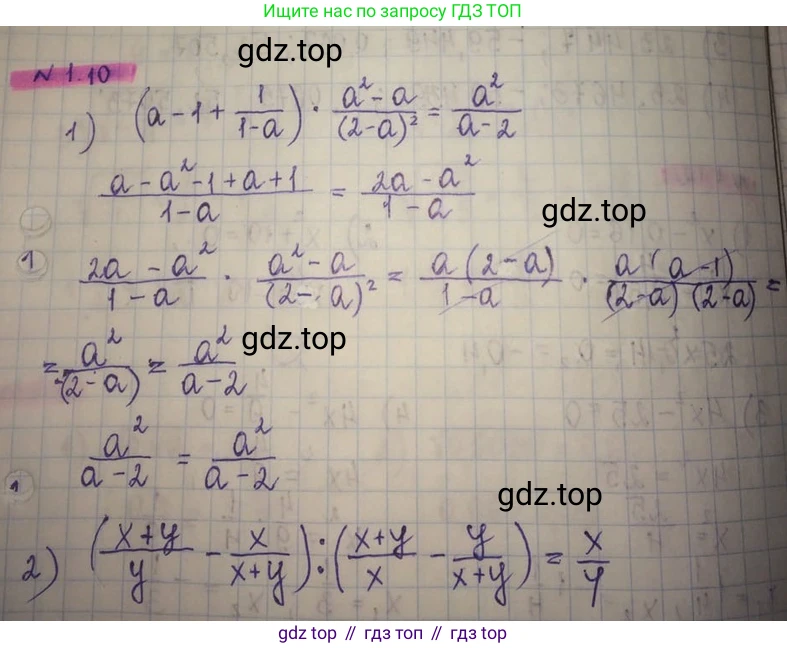 Ищите нас по запросу ГДЗ ТОП
gdz.top
N 1.10
1) (a-1+1/(1-a)) · (a²-a)/(2-a)² = a²/(a-2)
(a-a²-1+a+1)/(1-a) = (2a-a²)/(1-a)
gdz.top
1 (2a-a²)/(1-a) · (a²-a)/(2-a)² = a(2-a)/(1-a) · a(a-1)/((2-a)(2-a)) =
= a²/-(2-a) = a²/(a-2)
gdz.top
a²/(a-2) = a²/(a-2)
gdz.top
2) ((x+y)/y - x/(x+y)) : ((x+y)/x - y/(x+y)) = x/y
gdz.top // гдз топ // gdz.top